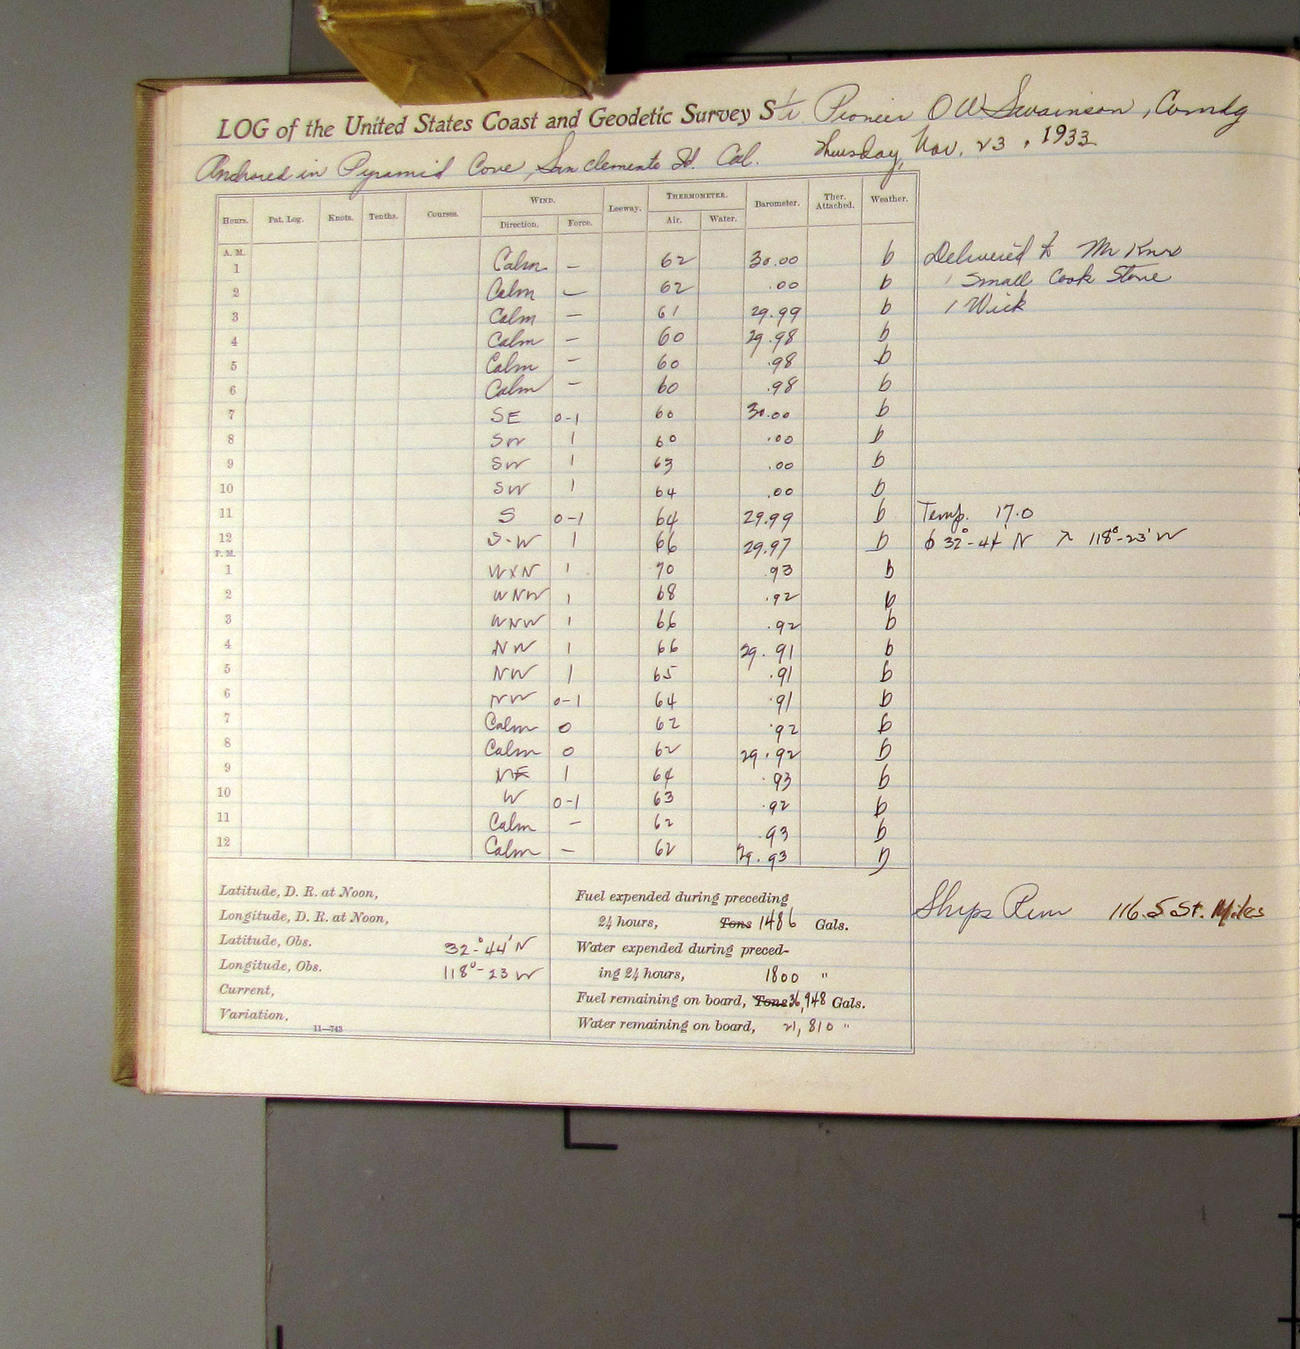 LOG of the United States Coast and Geodetic Survey Str Pioneer O W Swainson, Comdg
Anchored in Pyramid Cove, San Clemente Id. Cal. Thursday, Nov. 23, 1933
Hours. Pat. Log. Knots. Tenths. Courses. WIND. Leeway. THERMOMETER. Barometer. Ther. Attached. Weather.
Direction. Force. Air. Water.
A. M.
1 Calm — 62 30.00 b Delivered to Mr
2 Calm — 62 .00 b 1 Small Cook Stove
3 Calm — 61 29.99 b 1 Wick
4 Calm — 60 29.98 b
5 Calm — 60 .98 b
6 Calm — 60 .98 b
7 SE 0-1 60 30.00 b
8 SW 1 60 .00 b
9 SW 1 63 .00 b
10 SW 1 64 .00 b
11 S 0-1 64 29.99 b Temp. 17.0
12 S-W 1 66 29.97 b ϕ 32°-44' N λ 118°-23' W
P. M.
1 WXN 1 70 .93 b
2 WNW 1 68 .92 b
3 WNW 1 66 .92 b
4 NW 1 66 29.91 b
5 NW 1 65 .91 b
6 NW 0-1 64 .91 b
7 Calm 0 62 .92 b
8 Calm 0 62 29.92 b
9 NE 1 64 .93 b
10 W 0-1 63 .92 b
11 Calm — 62 .93 b
12 Calm — 62 29.93 b
Latitude, D. R. at Noon,
Longitude, D. R. at Noon,
Latitude, Obs. 32-°44' N
Longitude, Obs. 118°-23 W
Current,
Variation,
11—743
Fuel expended during preceding
24 hours, Tons 1486 Gals.
Water expended during preced-
ing 24 hours, 1800 "
Fuel remaining on board, Tons 36,948 Gals.
Water remaining on board, 21,810 "
Ships Run 116.5 St. Miles